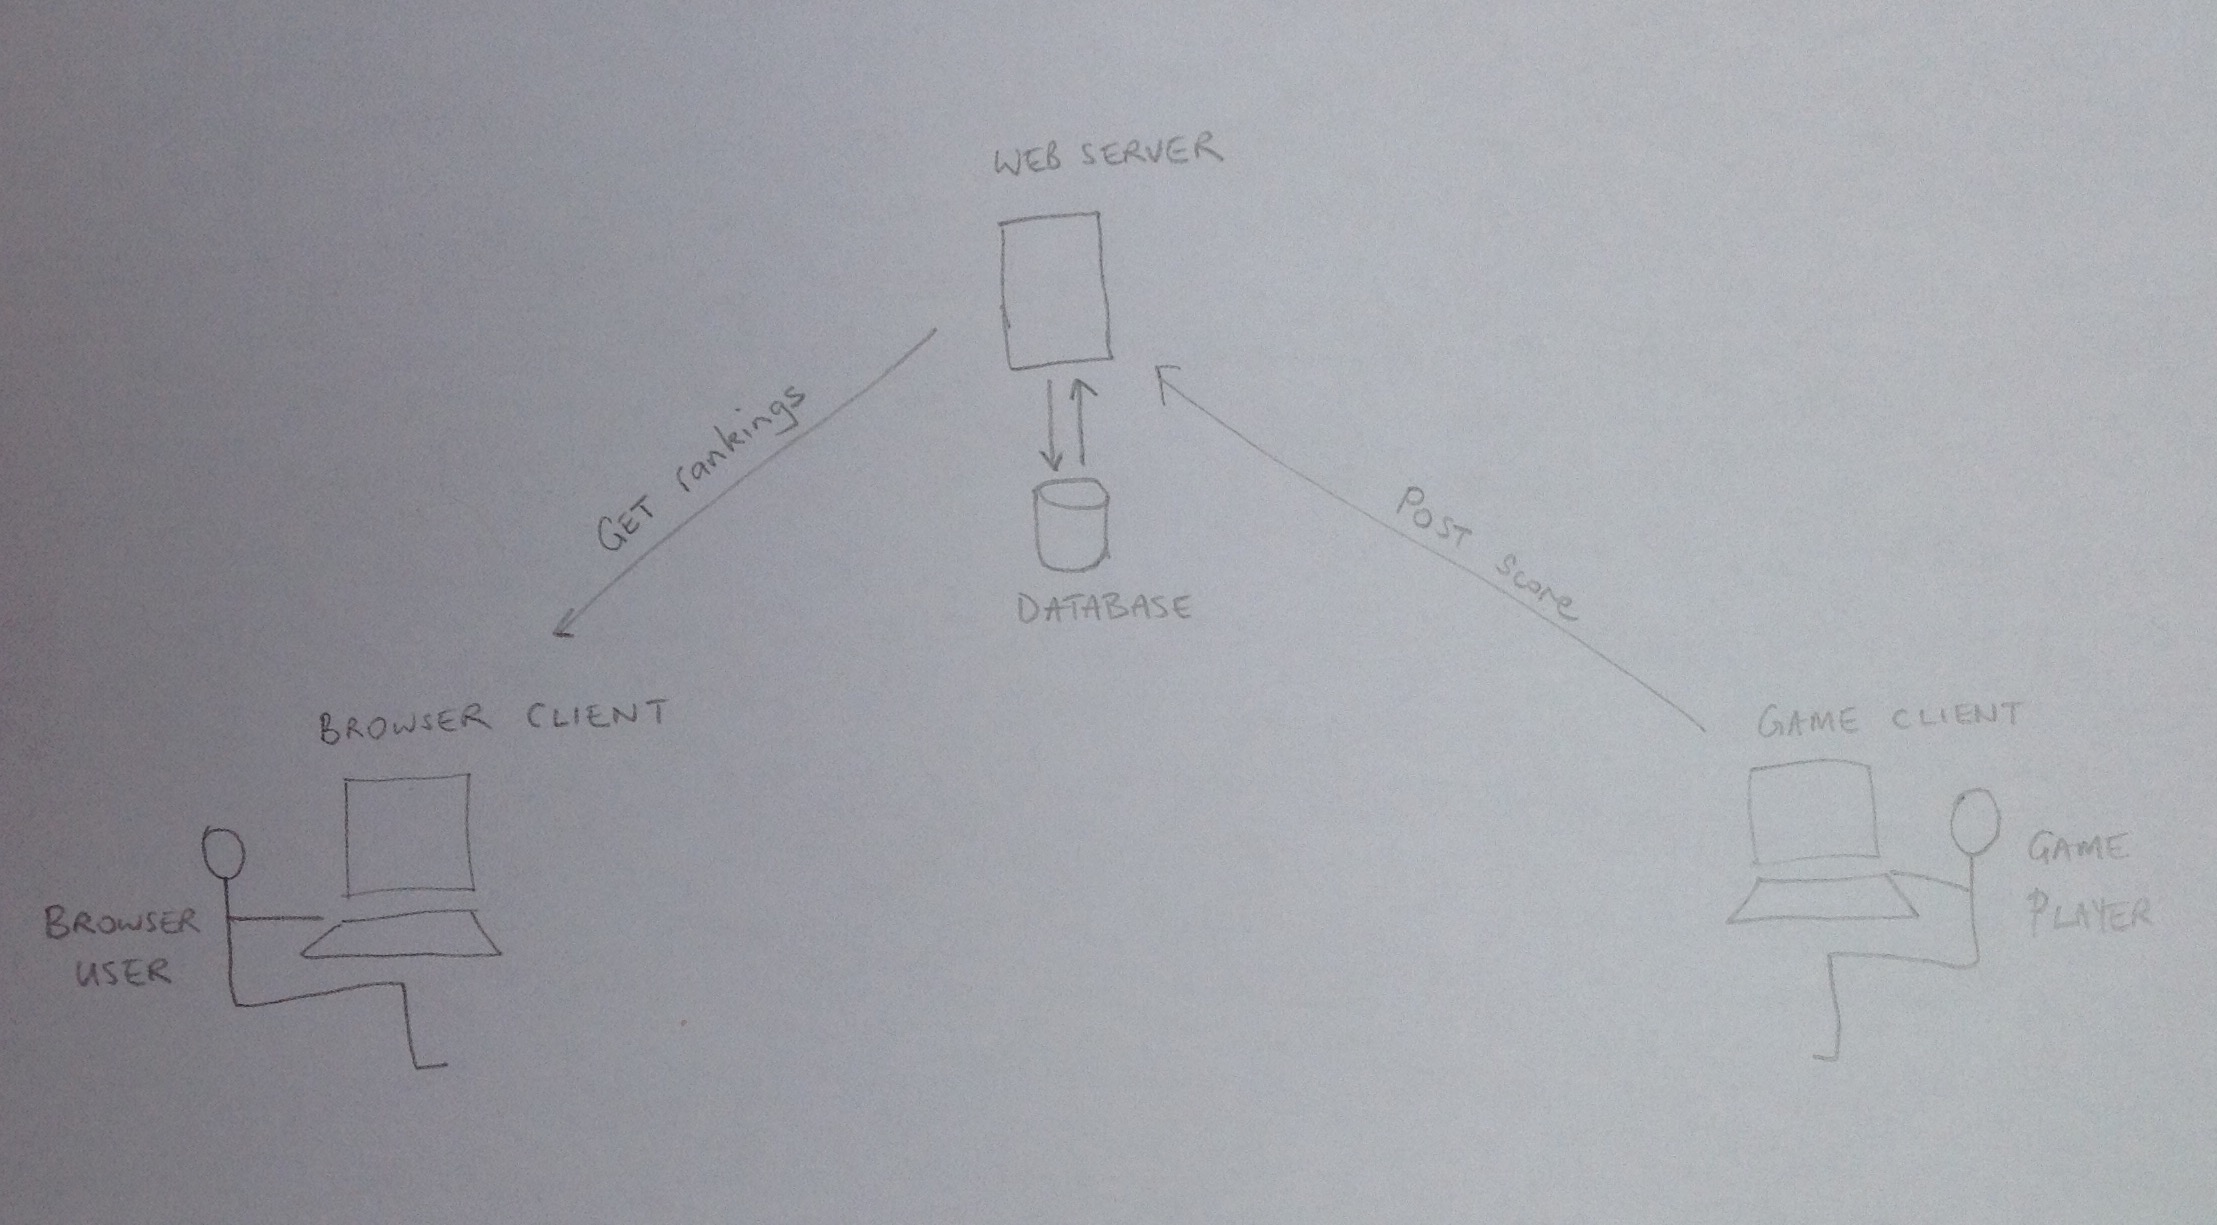 WEB SERVER
GET rankings
POST score
DATABASE
BROWSER CLIENT
GAME CLIENT
BROWSER
USER
GAME
PLAYER